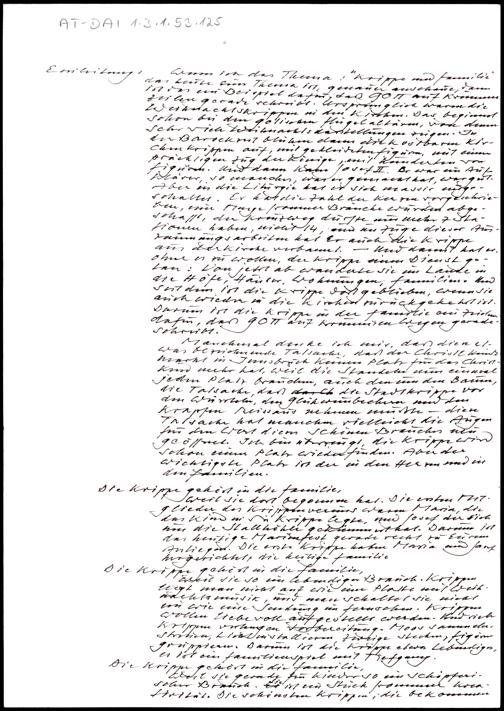 AT-DAI 1.3.1.53.125
Einleitung: Wenn ich das Thema: "Krippe und Familie"
das heute zum Thema ist, genauer anschaue, dann
ist das ein Beispiel dafür, daß GOTT auf krummen
Zeilen gerade schreibt. Ursprünglich waren die
Weihnachtskrippen in den Kirchen. Das beginnt
schon bei den gotischen Flügelaltären, von denen
sehr viele Weihnachtsdarstellungen zeigen. In
der Barockzeit blühen dann die kostbaren Kir-
chenkrippen auf, mit gekleideten Figuren, mit dem
prächtigen Zug der Könige, mit Hunderten von
Figuren. Und dann kam Josef II. Er war ein Auf-
klärer, so manches, was er gemacht hat, war gut.
Aber in die Liturgie hat er sich massiv einge-
schaltet. Er hat die Zahl der Kerzen vorgeschrie-
ben, eine Menge frommer Bräuche wurden abge-
schafft, der Kreuzweg durfte nur mehr Sta-
tionen haben, nicht 14, und im Zuge dieser Aus-
räumungsarbeiten hat er auch die Krippe
aus der Kirche verbannt. - Und damit hat er,
ohne es zu wollen, der Krippe einen Dienst ge-
tan: Von jetzt ab wanderte sie im Lande in
die Höfe, Häuser, Wohnungen, Familien. Und
seitdem ist die Krippe dort geblieben, wenn sie
auch wieder in die Kirchen zurückgekehrt ist.
Darum ist die Krippe in der Familie ein Zeichen
dafür, daß GOTT auf krummen Wegen gerade
schreibt.
Manchmal denke ich mir, daß die et-
was betrübende Tatsache, daß der Christkindl-
markt in Innsbruck keinen Platz für das Christ-
kind mehr hat, weil die Standeln nun einmal
jeden Platz brauchen, auch den um den Baum,
die Tatsache, daß die Stadtkrippe vor
den Würsteln, den Glühweinbechern und den
Krapfen Reißaus nehmen mußte - diese
Tatsache hat manchem vielleicht die Augen
für den Wert dieses schönen Brauches neu
geöffnet. Ich bin überzeugt, die Krippe wird
schon einen Platz wieder finden. Aber der
wichtigste Platz ist der in den Herzen und in
den Familien.
Die Krippe gehört in die Familie,
weil sie dort begonnen hat. Die ersten Mit-
glieder des Krippenvereins waren Maria, die
das Kind in die Krippe legte, und Josef der sich
um die Stallhöhle gekümmert hat. Darum ist
das heutige Marienfest gerade recht zu diesem
Anliegen. Die erste Krippe haben Maria und Josef
hergerichtet, die heilige Familie
Die Krippe gehört in die Familie,
weil sie so ein lebendiger Brauch. Krippen
legt man nicht auf wie eine Platte mit Weih-
nachtsmusik, und man schaltet sie nicht
ein wie eine Sendung im Fernsehen. Krippen
wollen liebevoll aufgestellt werden. Und viele
Krippen verlangen Vorbereitung: Moos sammeln,
streuen, Licht installieren, Zweige stecken, Figuren
gruppieren. Darum ist die Krippe etwas Lebendiges,
es ist ein Familienspiel mit Tiefgang.
Die Krippe gehört in die Familie,
weil sie gerade für Kinder so ein schöpferi-
scher Brauch. Es ist ein Stück frommer Krea-
tivität. Die schönsten Krippen, die bekommen